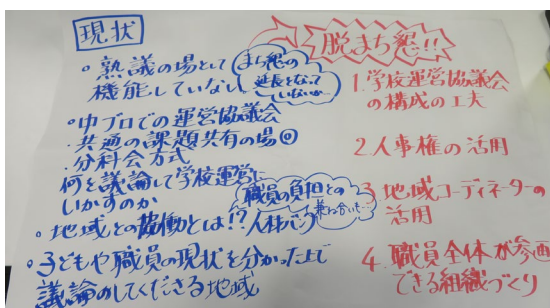 現状
。熟議の場として
機能していない
まち懇の
延長となって
いないか
。中ブロでの運営協議会
・共通の課題共有の場◎
・分科会方式
何を議論して学校運営に
いかすのか
職員の負担との
兼ね合いも…
。地域との協働とは!?人材バンク
。子どもや職員の現状を分かった上で
議論のしてくださる地域
脱まち懇!!
1.学校運営協議会
の構成の工夫
2.人事権の活用
3.地域コーディネーターの
活用
4.職員全体が参画
できる組織づくり